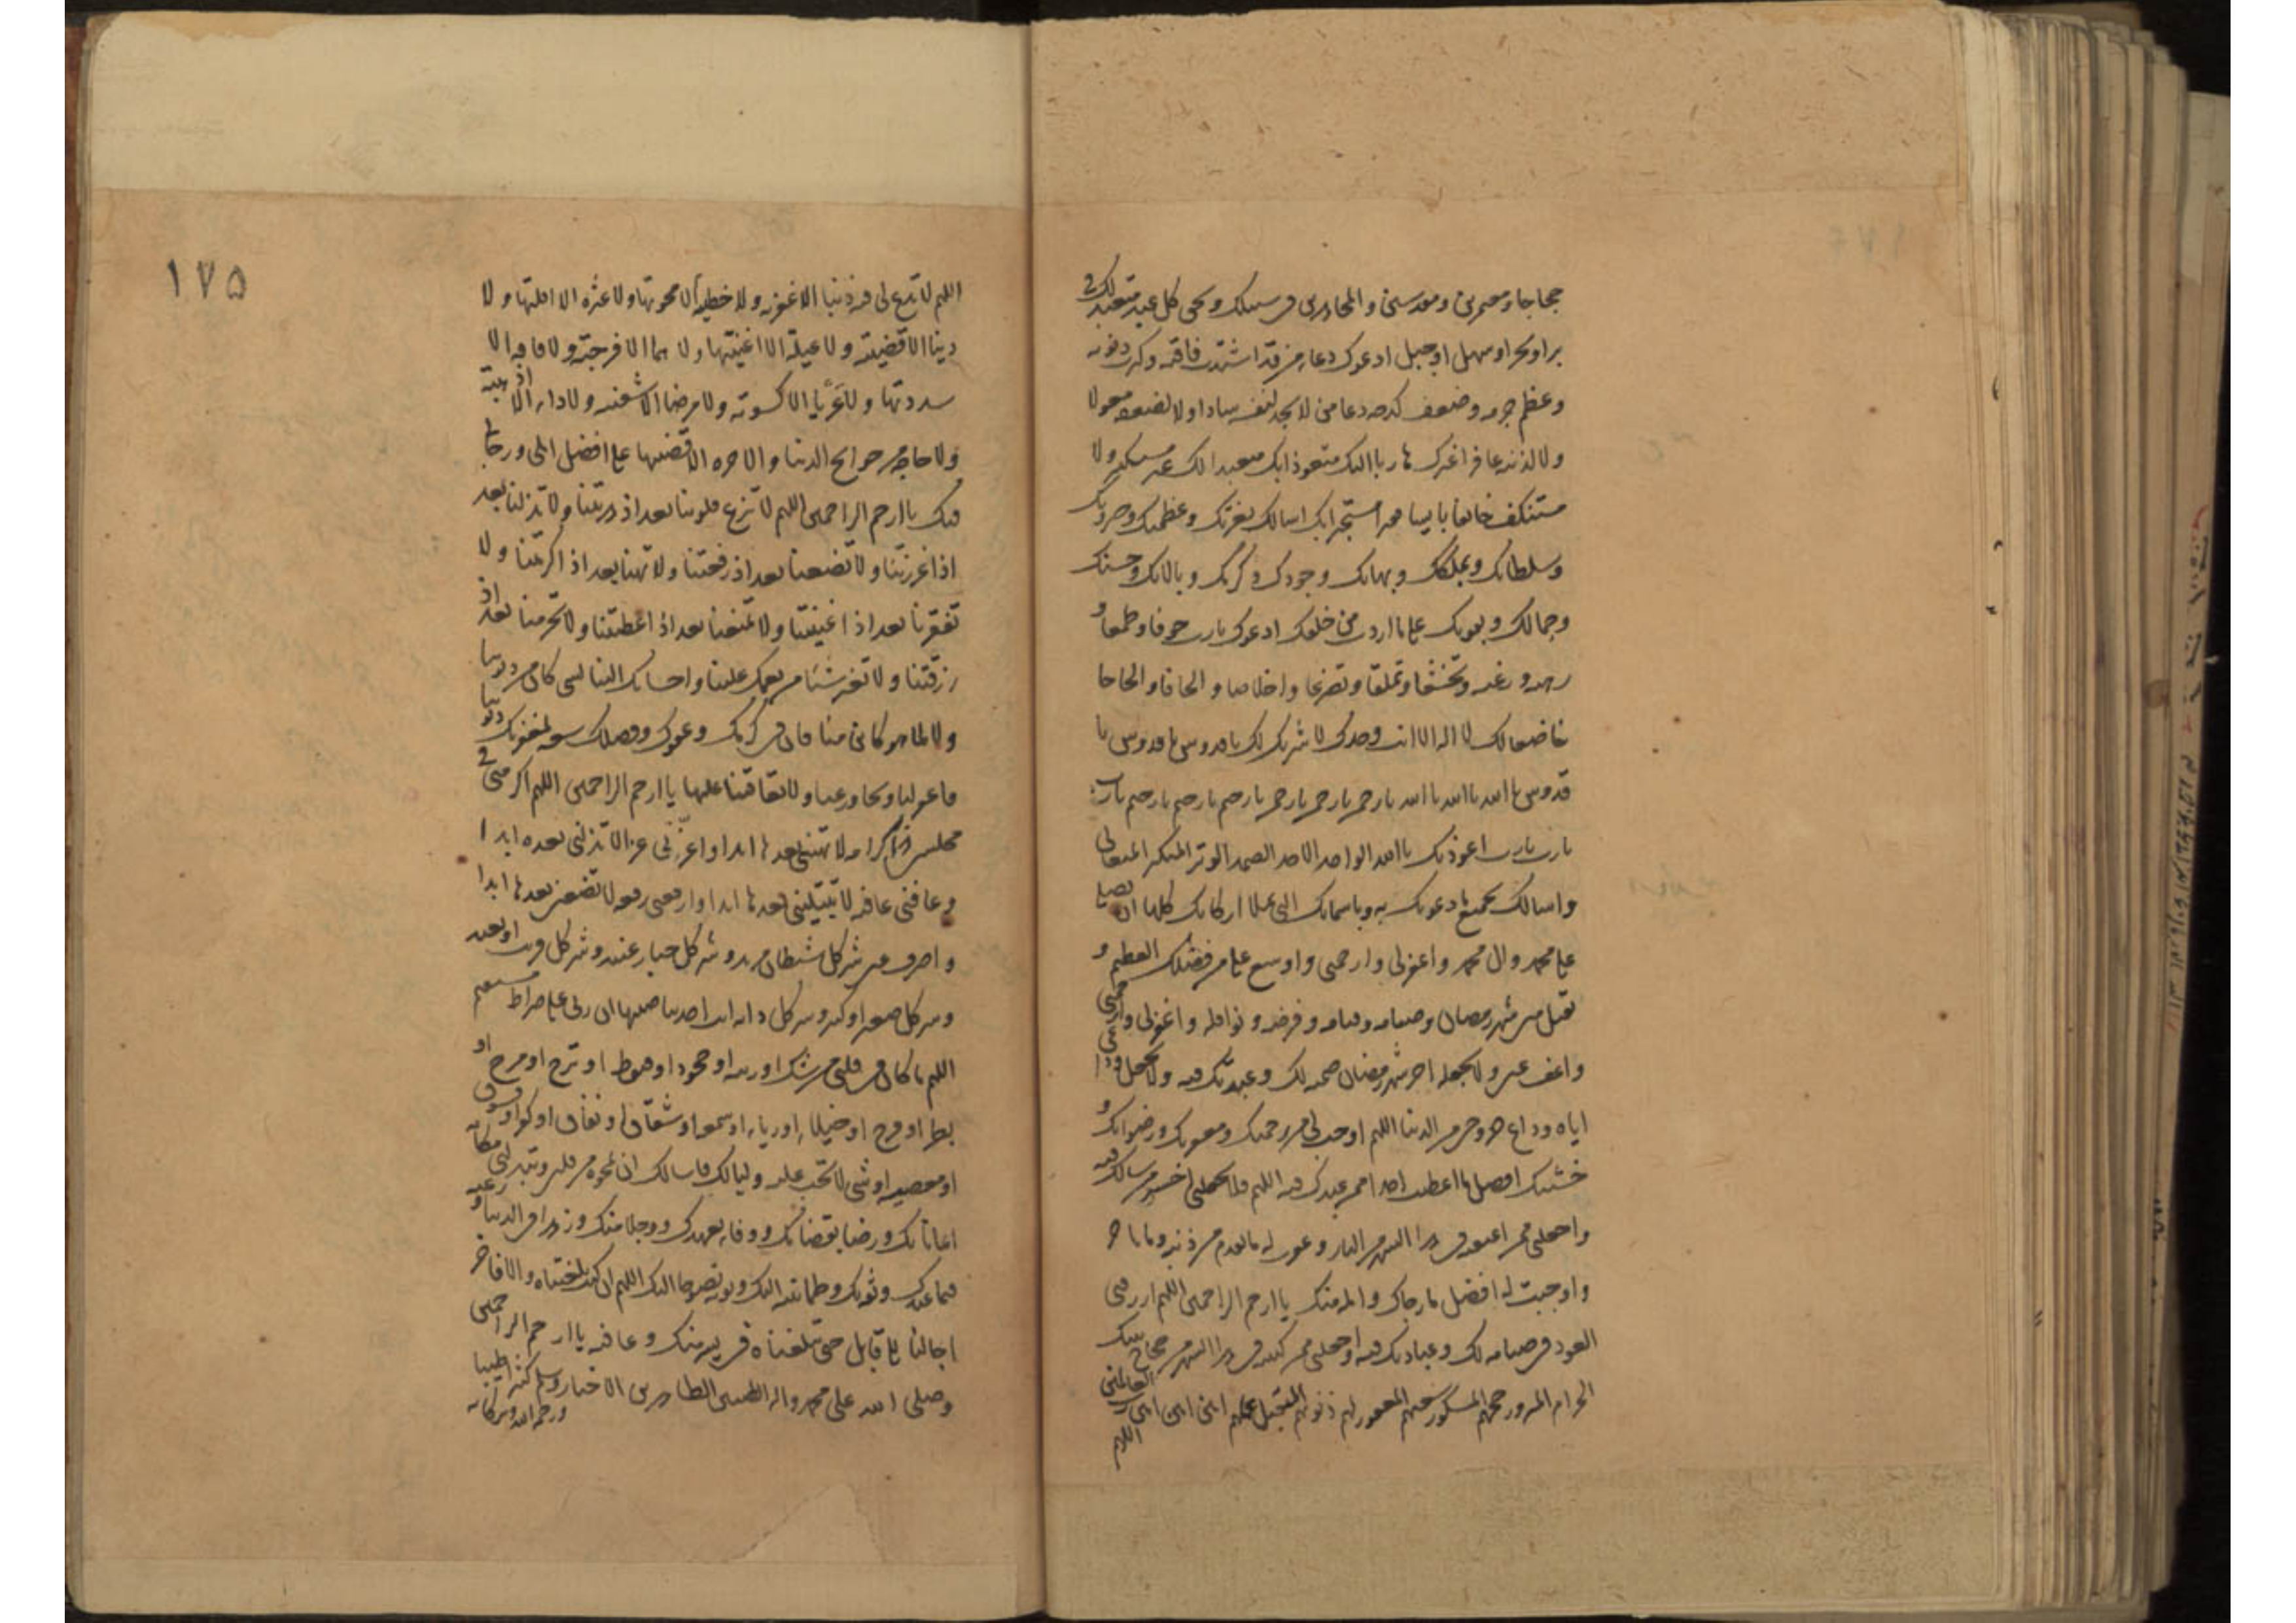 حجاجا ومعتمرين ومقدسين والمجاهدين في سبيلك وبحق كل عبد متعبد لك في
بر او بحر او سهل او جبل ادعوك دعاء من قد اشتدت فاقته وكثرت ذنوبه
وعظم جرمه وضعف كدحه دعاء من لا يجد لنفسه سادا ولا لضعفه معولا
ولا لذنبه غافرا غيرك هاربا اليك متعوذا بك متعبدا لك غير مستكبر ولا
مستنكف خائفا بائسا فقيرا مستجيرا بك اسالك بعزتك وعظمتك وجبروتك
وسلطانك وبملكك وببهائك وجودك وكرمك وبالائك وحسنك
وجمالك وبقوتك على ما اردت من خلقك ادعوك يارب خوفا وطمعا و
رهبة ورغبة وتخشعا وتملقا وتضرعا واخلاصا والحافا والحاحا
خاضعا لك لا اله الا انت وحدك لا شريك لك يا قدوس يا قدوس يا
قدوس يا الله يا الله يا الله يا رحمن يا رحمن يا رحمن يا رحيم يا رحيم يا رحيم يا رب
يا رب يا رب اعوذ بك يا الله الواحد الاحد الصمد الوتر المتكبر المتعالي
واسالك بجميع ما دعوتك به وباسمائك التي تملا اركانك كلها ان تصلي
على محمد وال محمد واغفر لي وارحمني واوسع علي من فضلك العظيم و
تقبل مني شهر رمضان وصيامه وقيامه وفرضه ونوافله واغفر لي وارحمني
واعف عني ولا تجعله اخر شهر رمضان صمته لك وعبدتك فيه ولا تجعل وداعي
اياه وداع خروجي من الدنيا اللهم اوجب لي من رحمتك ومغفرتك ورضوانك و
خشيتك افضل ما اعطيت احدا ممن عبدك فيه اللهم فلا تجعلني اخسر من سالك فيه
واجعلني ممن اعتقته في هذا الشهر من النار وغفرت له ما تقدم من ذنبه وما تاخر
واوجبت له افضل ما رجاك وامله منك يا ارحم الراحمين اللهم ارزقني
العود في صيامه لك وعبادتك فيه واجعلني ممن كتبته في هذا الشهر من حجاج بيتك
الحرام المبرور حجهم المشكور سعيهم المغفور لهم ذنوبهم المتقبل عملهم امين امين امين رب العالمين
اللهم
١٧٥
اللهم لا تدع لي فيه ذنبا الا غفرته ولا خطيئة الا محوتها ولا عثرة الا اقلتها ولا
دينا الا قضيته ولا عيلة الا اغنيتها ولا هما الا فرجته ولا فاقة الا
سددتها ولا عريا الا كسوته ولا مرضا الا شفيته ولا داء الا اذهبته
ولا حاجة من حوائج الدنيا والاخرة الا قضيتها على افضل املي ورجائي
فيك يا ارحم الراحمين اللهم لا تزغ قلوبنا بعد اذ هديتنا ولا تذلنا بعد
اذ اعززتنا ولا تضعنا بعد اذ رفعتنا ولا تهنا بعد اذ اكرمتنا ولا
تفقرنا بعد اذ اغنيتنا ولا تمنعنا بعد اذ اعطيتنا ولا تحرمنا بعد اذ
رزقتنا ولا تغير شيئا من نعمك علينا واحسانك الينا لشي كان من ذنوبنا
ولا لما هو كائن منا فان في كرمك وعفوك وفضلك سعة لمغفرتك ذنوبنا
فاغفر لنا وتجاوز عنا ولا تعاقبنا عليها يا ارحم الراحمين اللهم اكرمني في
مجلسي هذا كرامة لا تهينني بعدها ابدا واعزني عزا لا تذلني بعده ابدا
وعافني عافية لا تبتليني بعدها ابدا وارفعني رفعة لا تضعني بعدها ابدا
واصرف عني شر كل شيطان مريد وشر كل جبار عنيد وشر كل قريب او بعيد
وشر كل صغير او كبير وشر كل دابة انت اخذ بناصيتها ان ربي على صراط مستقيم
اللهم ما كان في قلبي من شك او ريبة او جحود او قنوط او ترح او مرح او
بطر او فرح او خيلاء او رياء او سمعة او شقاق او نفاق او كفر او فسوق
او معصية او شي لا تحب عليه وليا لك فاسالك ان تمحوه من قلبي وتبدلني مكانه
ايمانا بك ورضا بقضائك ووفاء بعهدك ووجلا منك وزهدا في الدنيا ورغبة
فيما عندك وثقة بك وطمانينة اليك وتوبة نصوحا اليك اللهم ان كنت بلغتناه والا فاخر
اجالنا الى قابل حتى تبلغناه في يسر منك وعافية يا ارحم الراحمين
وصلى الله على محمد واله الطيبين الطاهرين الاخيار وسلم كثيرا طيبا
ورحمة الله وبركاته